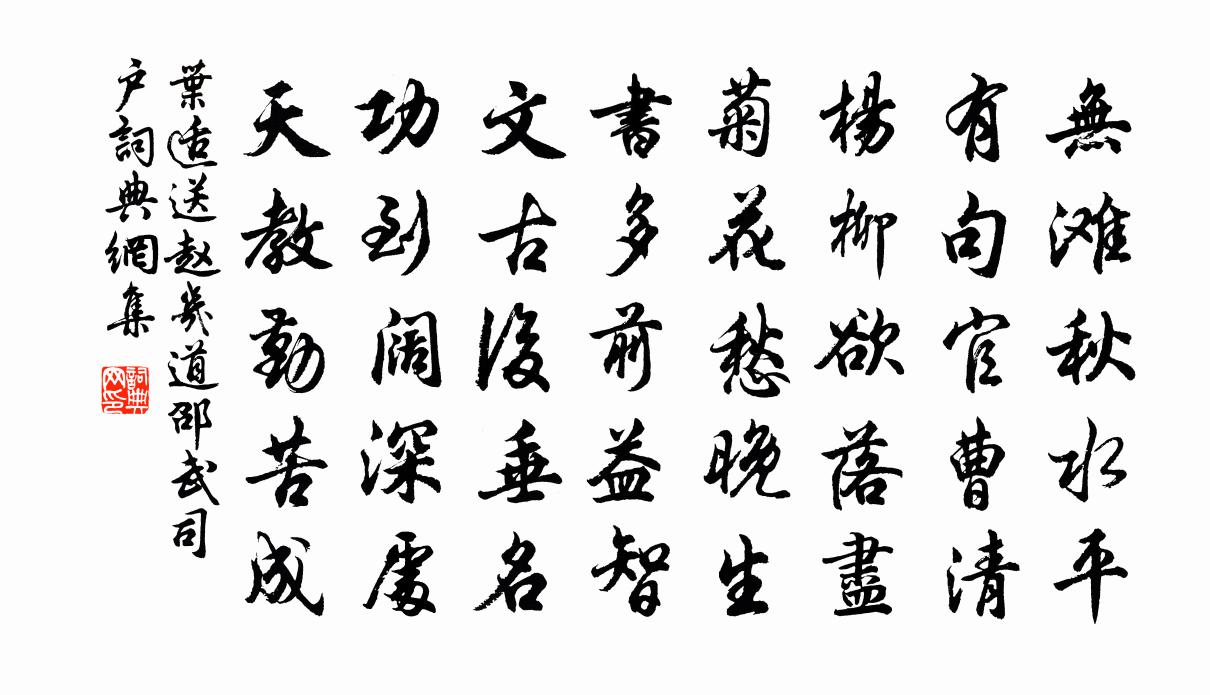 無滩秋水平
有句官曹清
楊柳欲落盡
菊花愁晚生
書多前益智
文古後垂名
功到阔深處
天教勤苦成
葉适送赵幾道邵武司
户詞典網集
詞典网印